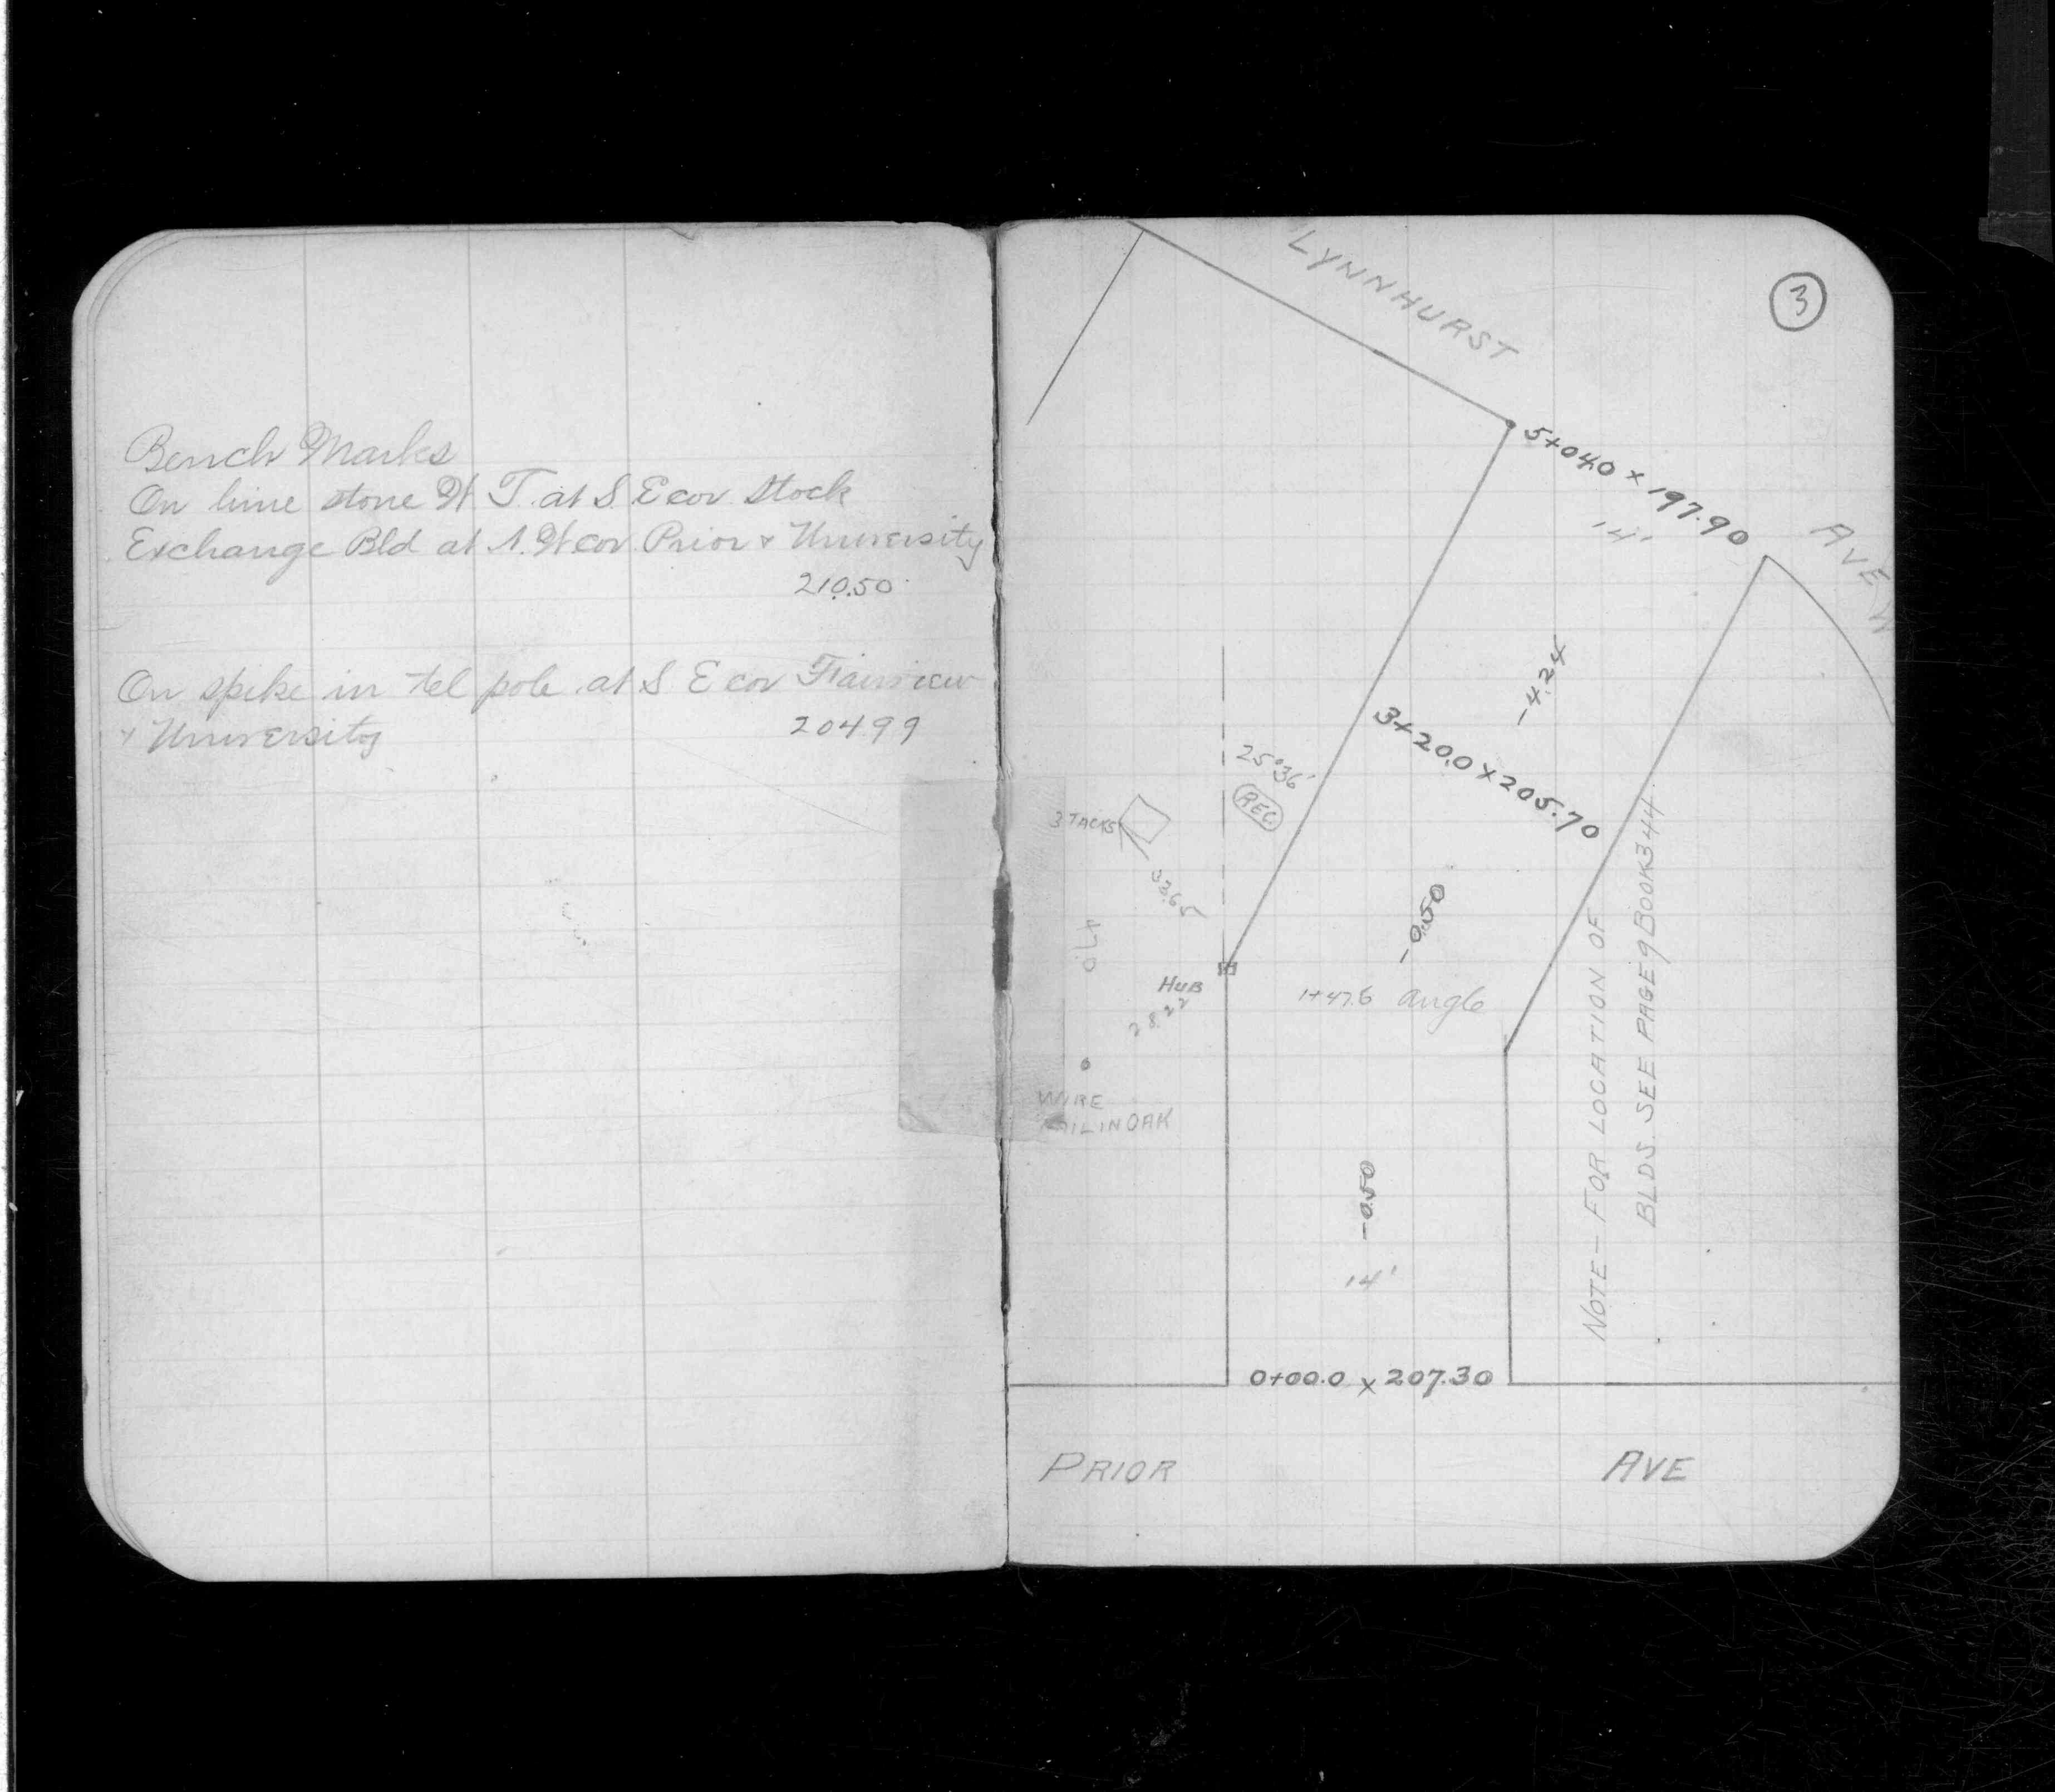 Bench Marks
On lime stone W. T. at S. E cor Stock
Exchange Bld at N. W cor Prior & University
210.50
On spike in tel pole at S E cor Fairview
& University
204 99
3
LYNNHURST
AVE W
5+04.0 x 197.90
14'
-4.24
3+20.0 x 205.70
25°36'
REC.
3 TACKS
33.65
-0.50
HUB
1+47.6 angle
28.22
WIRE
NAIL IN OAK
-0.50
14'
NOTE- FOR LOCATION OF
BLDS. SEE PAGE 9 BOOK 344.
0+00.0 x 207.30
PRIOR AVE